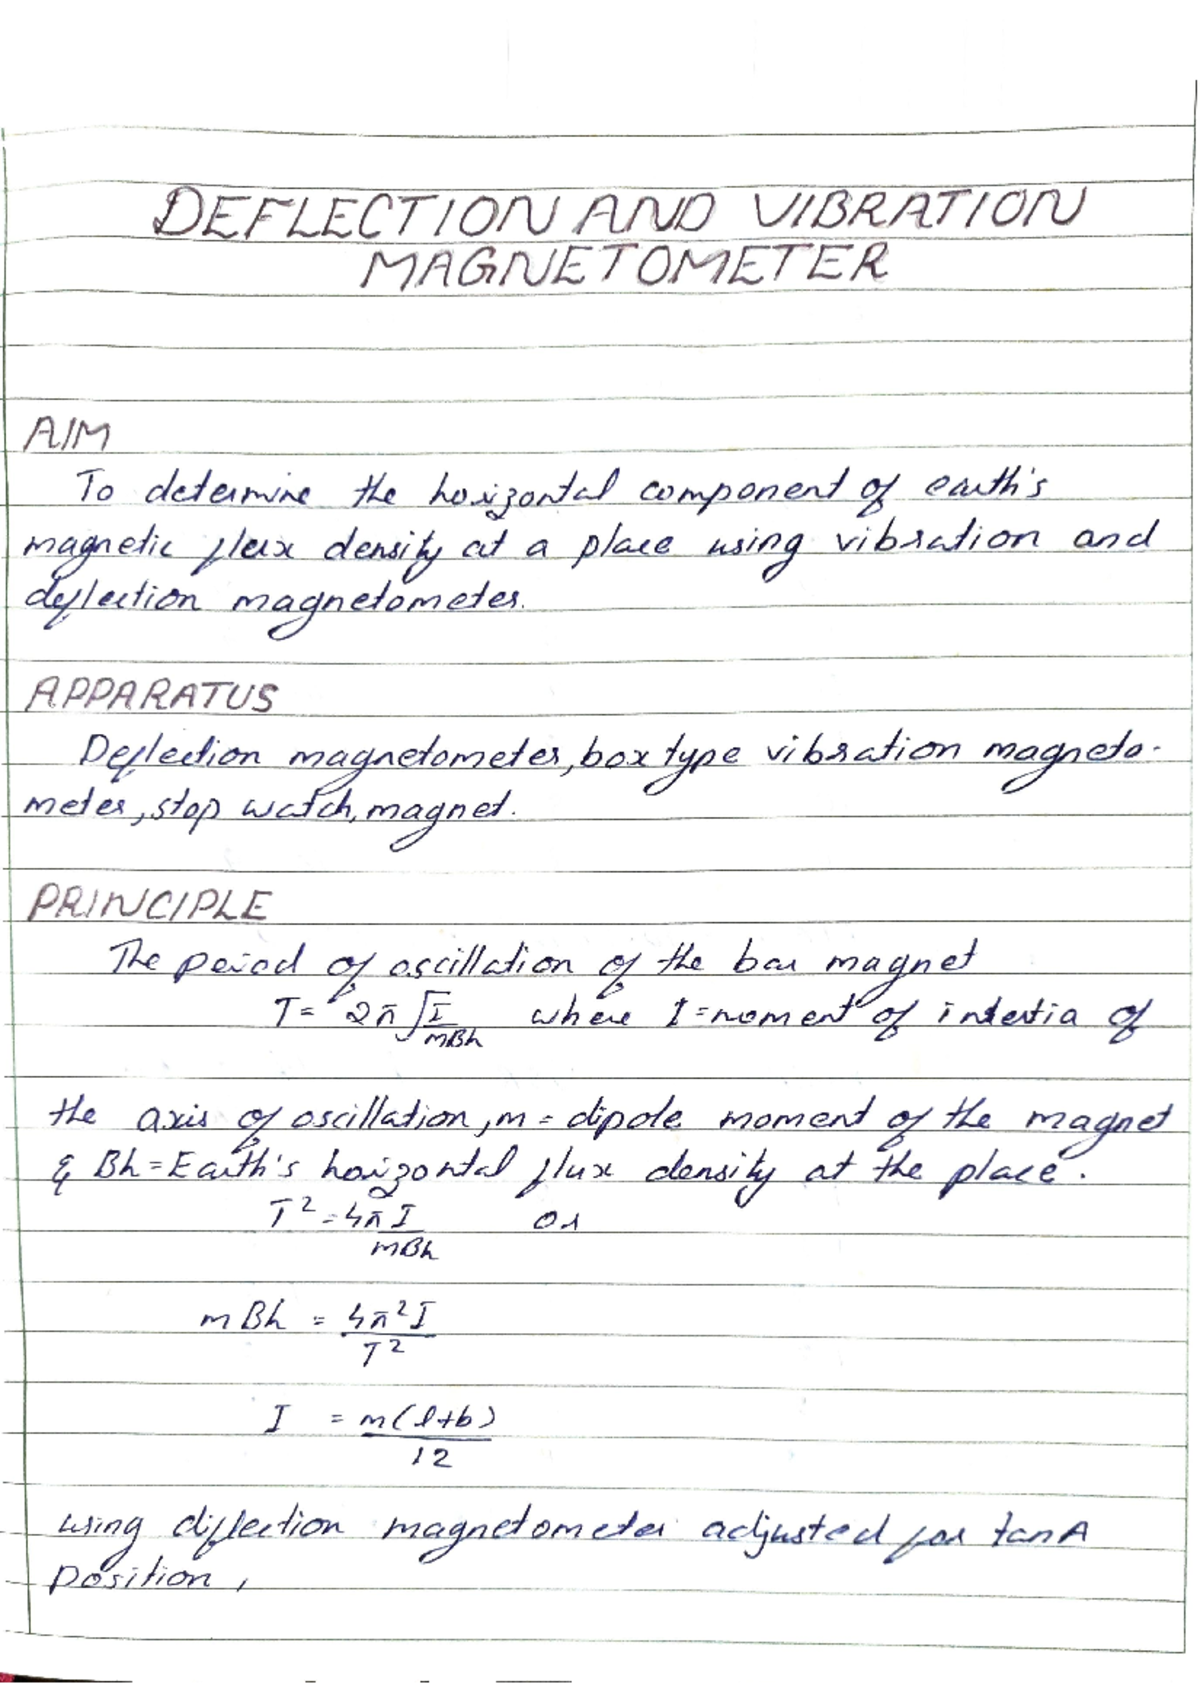 DEFLECTION AND VIBRATION
MAGNETOMETER
AIM
To determine the horizontal component of earth's
magnetic flux density at a place using vibration and
deflection magnetometer.
APPARATUS
Deflection magnetometer, box type vibration magneto-
meter, stop watch, magnet.
PRINCIPLE
The peiod of oscillation of the bar magnet
T = 2π√(I/mBh) where I = moment of intertia of
the axis of oscillation, m = dipole moment of the magnet
& Bh = Earth's horizontal flux density at the place.
T² = 4π I/mBh or
mBh = 4π²I/T²
I = m(l+b)/12
using diflection magnetometer adjusted for tanA
position,